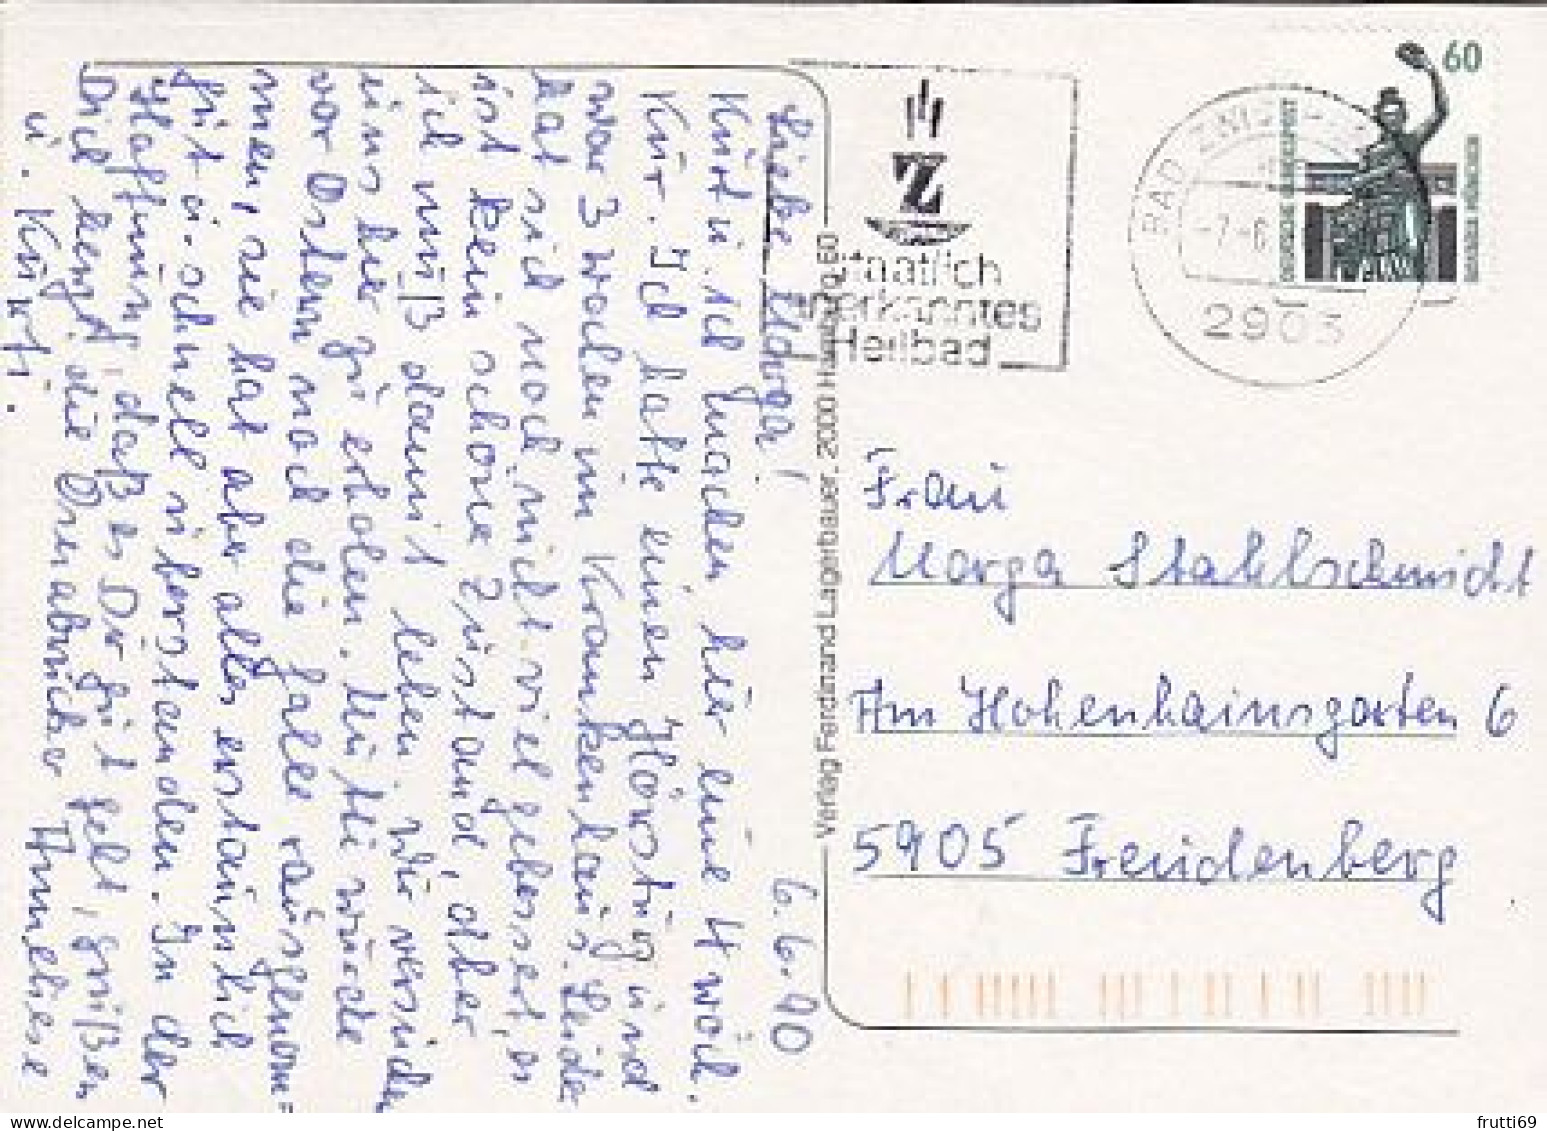 60
DEUTSCHE BUNDESPOST
BAVARIA MÜNCHEN
BAD ZWI
-7.-6.
2903
Z
Staatlich
anerkanntes
Heilbad
Verlag Ferdinand Lagerbauer, 2000 Hamburg 60
6.6.90
Liebe Marga!
Kurt u. ich machen hier eine 4 wöch.
Kur. Ich hatte einen Hörsturz und
war 3 Wochen im Krankenhaus. Leider
hat sich noch nicht viel gebessert, es
ist kein schöner Zustand, aber
ich muß damit leben. Wir versuchen
uns hier zu erholen. Mutti wurde
vor Ostern noch die Galle rausgenom=
men, sie hat aber alles erstaunlich
gut u. schnell überstanden. In der
Hoffnung, daß es Dir gut geht, grüßen
Dich herzl. die Osnabrücker Anneliese
u. Kurt.
Frau
Marga Stahlschmidt
Am Hohenhainsgarten 6
5905 Freudenberg
frutti69